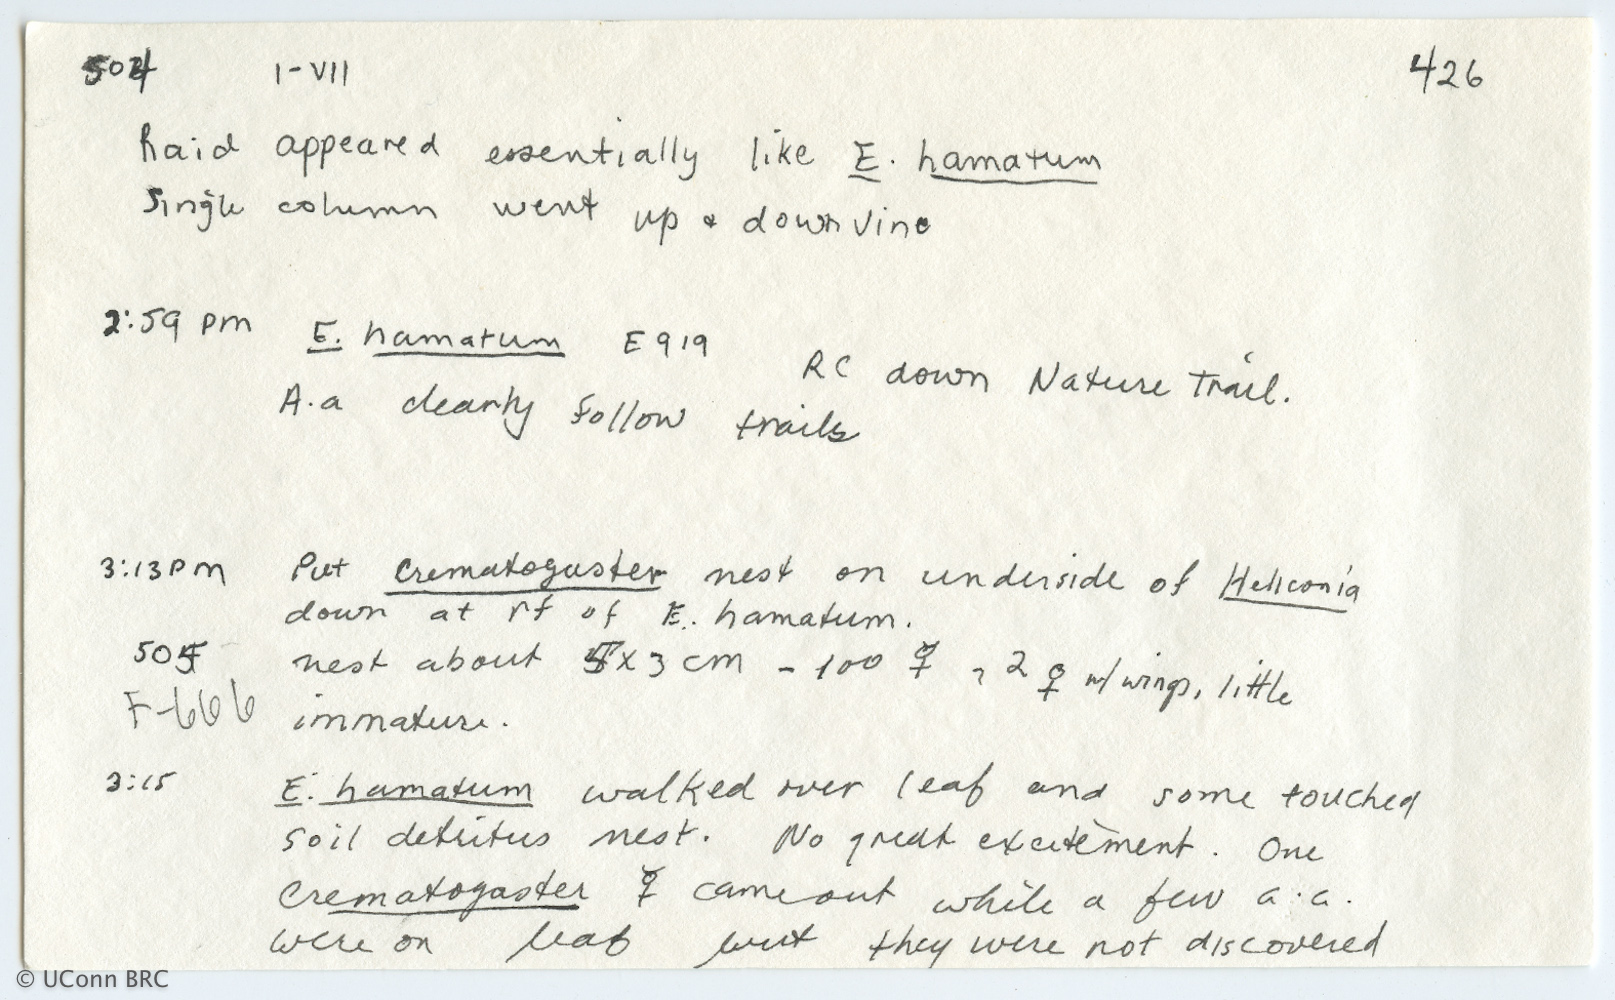 504 I-VII 426
Raid appeared essentially like E. hamatum
Single column went up & down vine
2:59 pm E. hamatum E 919 RC down Nature Trail.
A.a clearly follow trails
3:13 PM Put Crematogaster nest on underside of Heliconia
down at rf of E. hamatum.
505 nest about 5 x 3 cm - 100 ☿, 2 ♀ w/ wings, little
F-666 immature.
3:15 E. hamatum walked over leaf and some touched
soil detritus nest. No great excitement. One
Crematogaster ☿ came out while a few a.a.
were on leaf but they were not discovered
© UConn BRC